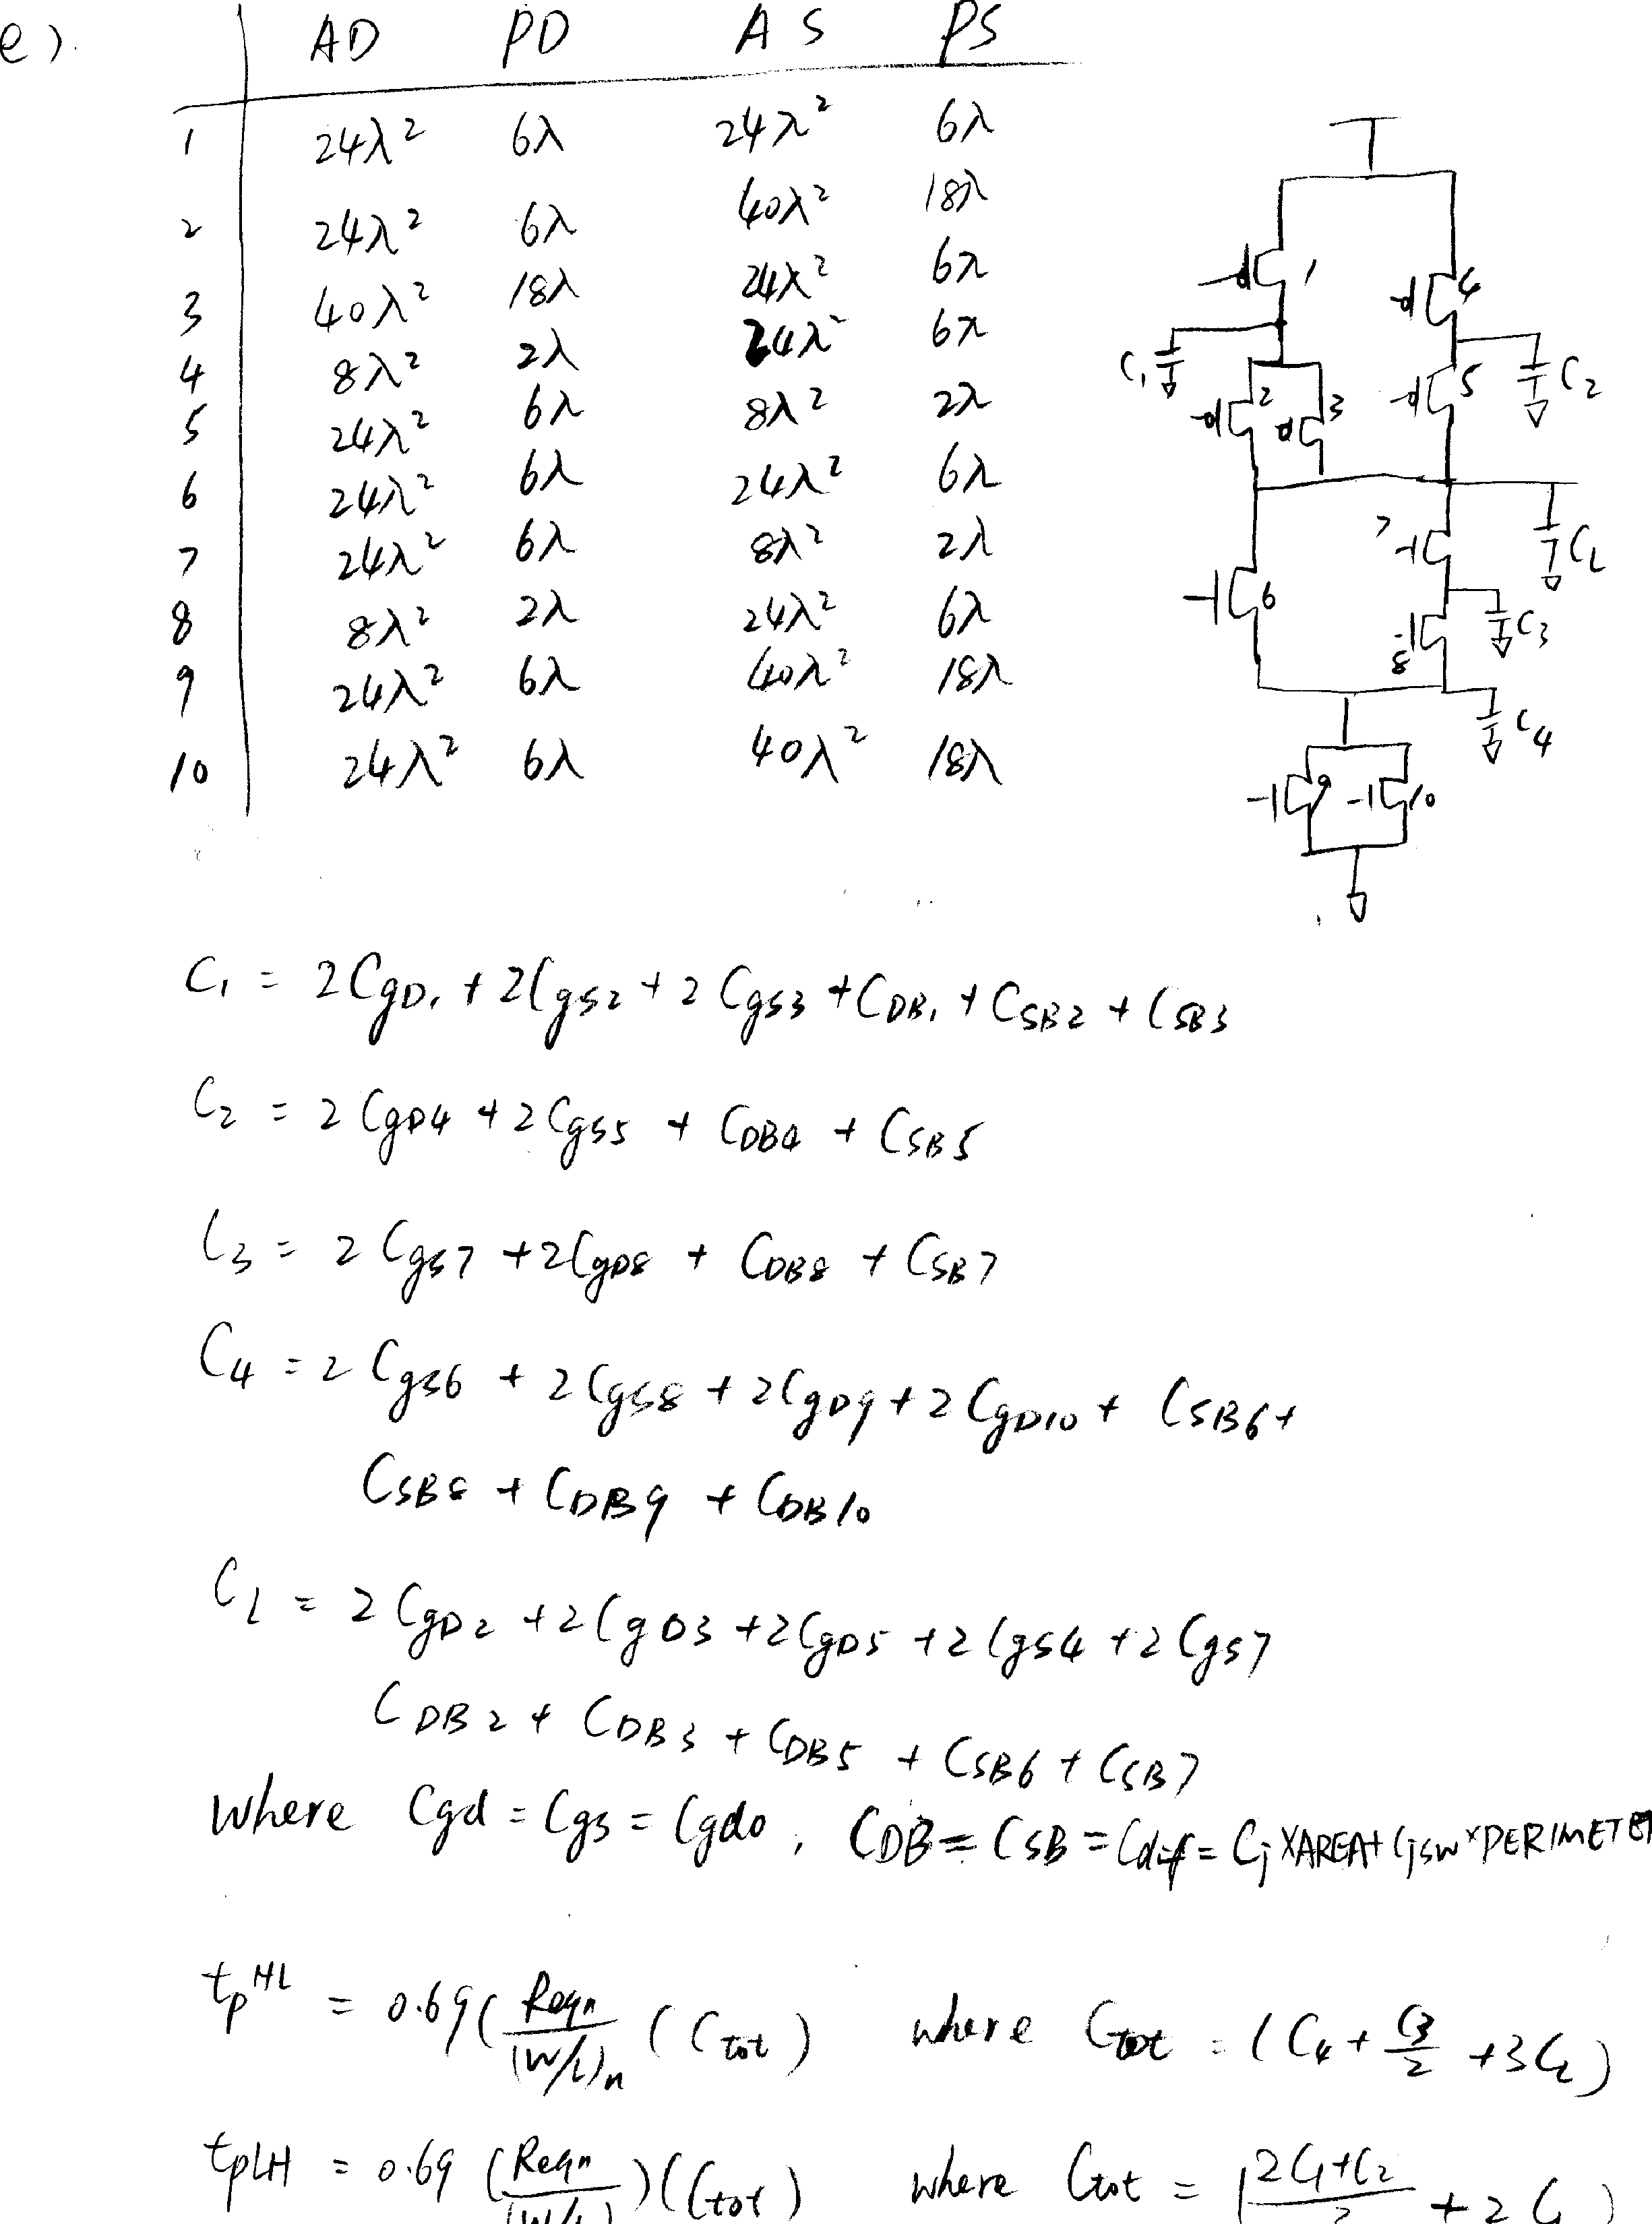 e).
AD PD AS PS
1 24λ² 6λ 24λ² 6λ
2 24λ² 6λ 40λ² 18λ
3 40λ² 18λ 24λ² 6λ
4 8λ² 2λ 24λ² 6λ
5 24λ² 6λ 8λ² 2λ
6 24λ² 6λ 24λ² 6λ
7 24λ² 6λ 8λ² 2λ
8 8λ² 2λ 24λ² 6λ
9 24λ² 6λ 40λ² 18λ
10 24λ² 6λ 40λ² 18λ
1 4
C₁ 2 3 5 C₂
7 C_L
6 C₃
8
C₄
9 10
C₁ = 2C_gD₁ + 2C_gS2 + 2C_gS3 + C_DB₁ + C_SB2 + C_SB3
C₂ = 2C_gD4 + 2C_gS5 + C_DB4 + C_SB5
C₃ = 2C_gS7 + 2C_gD8 + C_DB8 + C_SB7
C₄ = 2C_gS6 + 2C_gS8 + 2C_gD9 + 2C_gD10 + C_SB6 +
C_SB8 + C_DB9 + C_DB10
C_L = 2C_gD2 + 2C_gD3 + 2C_gD5 + 2C_gS4 + 2C_gS7
C_DB2 + C_DB3 + C_DB5 + C_SB6 + C_SB7
Where Cgd = Cgs = Cgdo, C_DB = C_SB = Cdif = Cj×AREA + Cjsw×PERIMETER
tp^HL = 0.69 (Reqn/(W/L)n (Ctot) where Ctot = (C₄ + C₃/2 + 3C_L)
tpLH = 0.69 (Reqn/(W/L))(Ctot) where Ctot = (2C₁+C₂/2 + 2C_L)